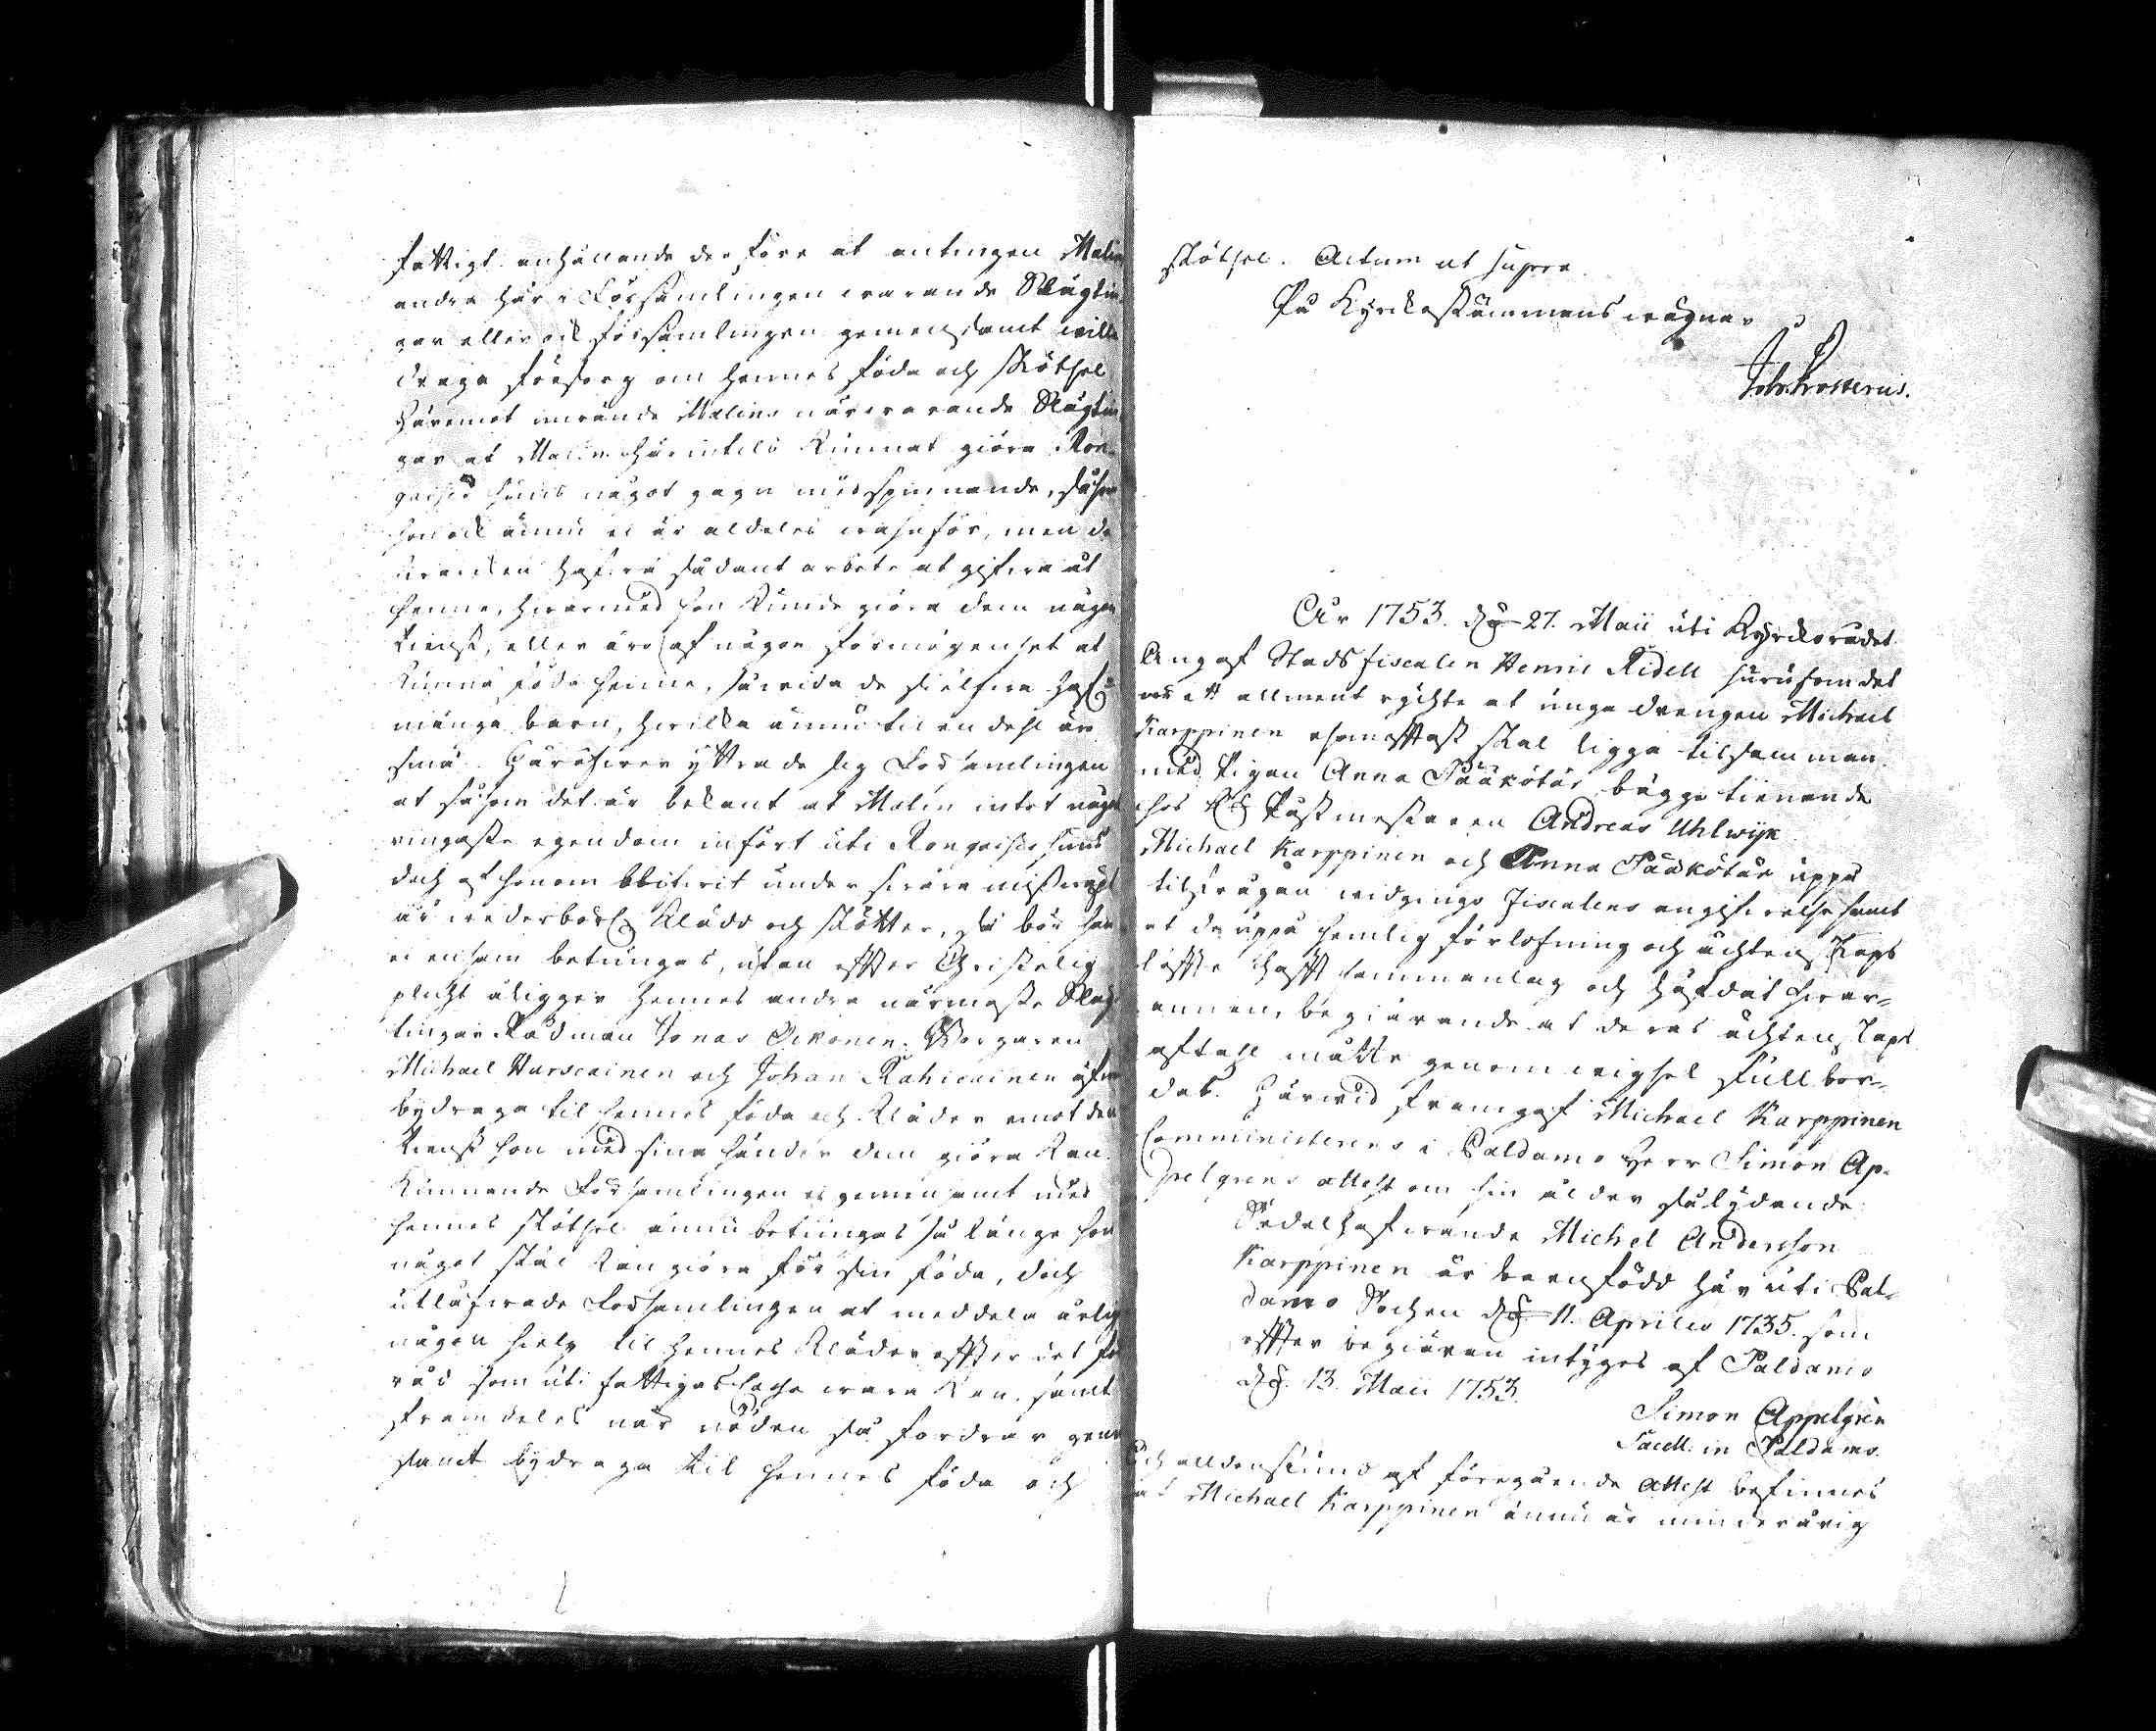 fattigt anhållande derföre at antingen Malin
andra här i Församlingen warande Slägtin
gar eller ock församlingen gemensamt wille
draga försorg om hennes föda och skötsel
Häremot inwände Malins närwarande Slägtin
gar at Malin härintils kunnat giöra Ron
gaises huus något gagn med spinnande, såsom
hon ock ännu ei är aldeles wahnför, men de
hafwa sådant arbete at gifwa åt
henne, hwarmed hon kunde giöra dem någon
tienst, eller äro af någon förmögenhet at
kunna föda henne, såwida de sielfwa hafwa
många barn, hwilka ännu til en dehl äro
små. Häröfwer yttrade sig Församlingen
at såsom det är bekant at Malin intet något
ringaste egendom infört uti Rongaises huus
doch af honom blifwit under swåra
år wederbörl. klädd och skött, så bör han
ei ensam betungas, utan effter Christelig
plicht åligger hennes andra närmaste Släg
tingar Rådman Jonas Oikonen. Borgaren
Michael Hurscainen och Johan Kahicainen äfwen
bydraga til hennes föda och kläder emot den
tienst hon med sina händer dem giöra kan.
Kunnande Församlingen ei gemensamt med
hennes skötsel ännu betungas så länge hon
något skäl kan giöra för sin föda, doch
utläfwade Församlingen at meddela årlig
någon hielp til hennes kläder effter det för
råd som uti fattigas Cassa wara kan, samt
framdeles när nöden så fordrar gem
samt bydraga til hennes föda och
skötsel. Actum ut supra.
På Kyrckostämmans wägnar
Joh. Frosterus.
Åhr 1753. d. 27. Maii uti Kyrckorådet
Angaf Stads fiscalen Henric Ridell huruson det
ett allment rychte at unga drengen Michael
Karppinen offtast skal ligga tilsamman
med Pigan Anna Pääkötär, bägge tienande
hos Postmestaren Andreas Uhlwijk.
Michael Karppinen och Anna Pääkötär uppå
tilfrågan widgingo Fiscalens angifwelse samt
at de uppå hemlig förlofning och ächtenskaps
löffte hafft sammanlag och häfdat hwar-
annan, begiärande at deras ächtenskaps
aftahl måtte genom wigsel fullbor-
das. Härwid framgaf Michael Karppinen
Comministerens i Paldamo Herr Simon Ap-
pelgrens attest om sin ålder så lydande:
Sedelhafwande Michel Andersson
Karppinen är barnsfödd här uti Pal-
damo Sochen d. 11. Aprilis 1735. som
effter begiäran intyges af Paldamo
d. 13. Maii 1753.
Simon Appelgren
Sacell. in Paldamo.
Och alldenstund af föregående attest befinnes
at Michael Karppinen ännu är minderårig